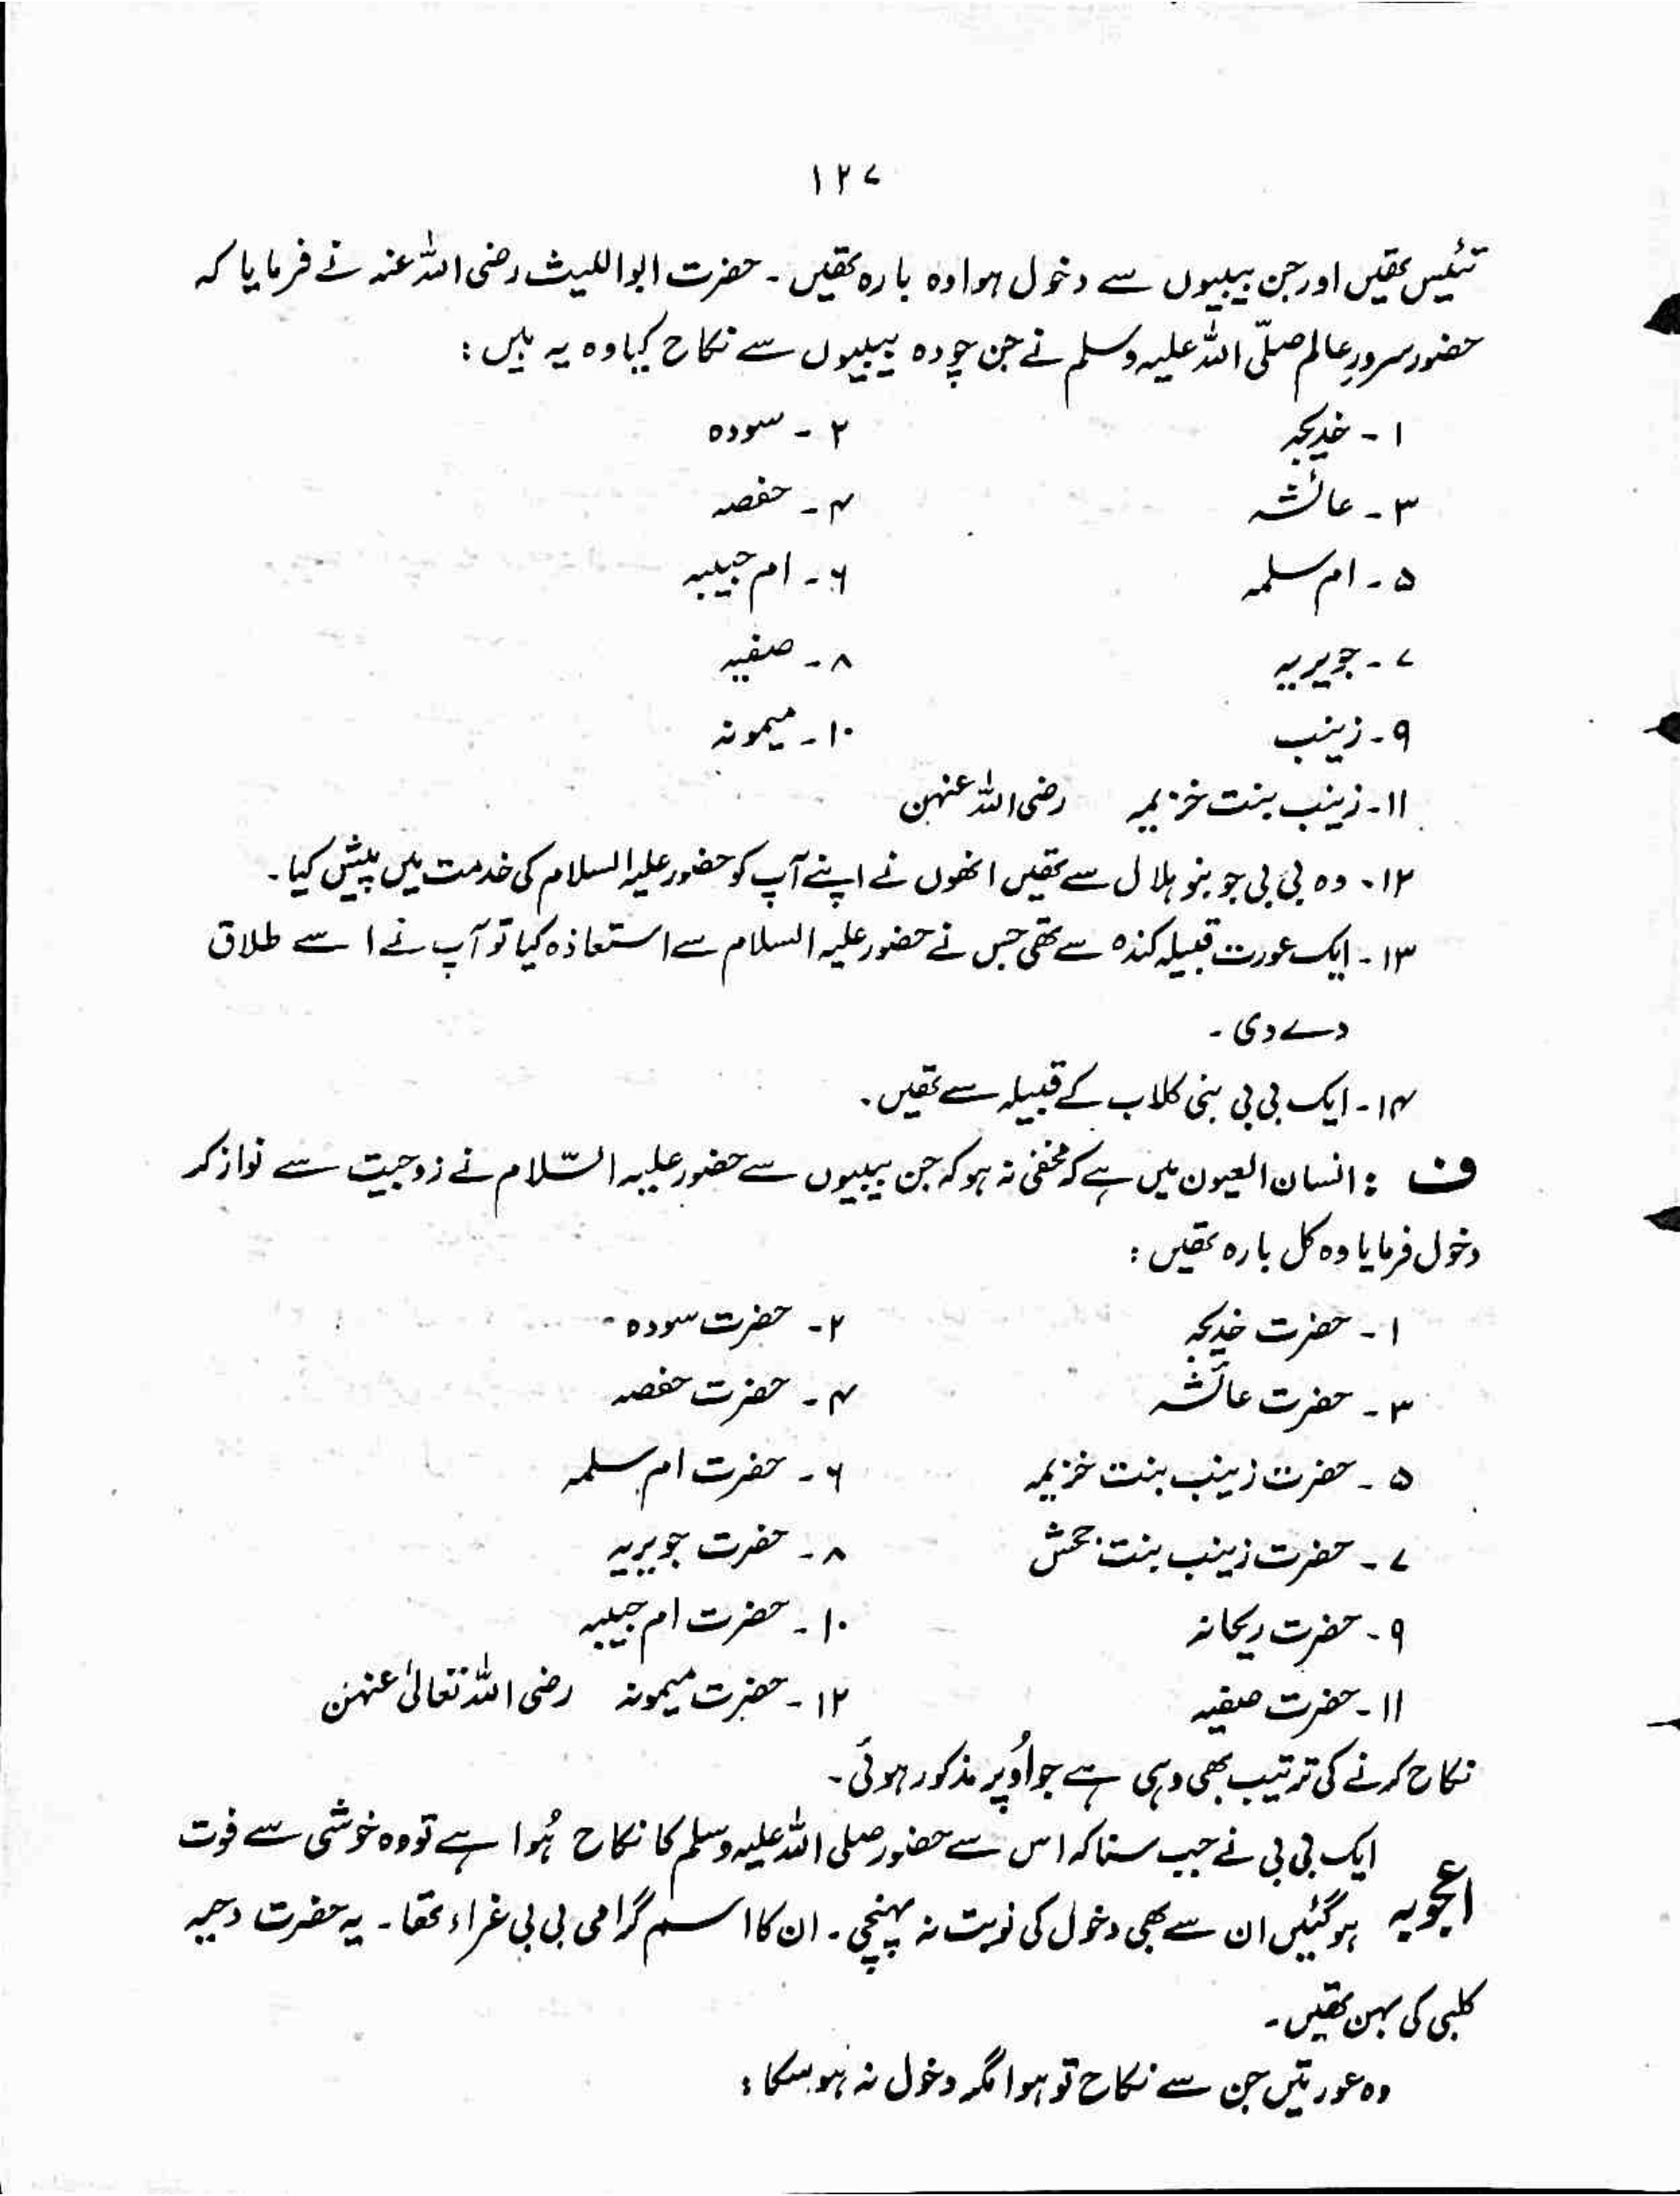 ۱۲۷
تئیس تھیں اور جن بیبیوں سے دخول ہوا وہ بارہ تھیں ۔ حضرت ابواللیث رضی اللہ عنہ نے فرمایا کہ
حضور سرورِ عالم صلّی اللہ علیہ وسلم نے جن چودہ بیبیوں سے نکاح کیا وہ یہ ہیں :
۱ - خدیجہ ۲ - سودہ
۳ - عائشہ ۴ - حفصہ
۵ - ام سلمہ ۶ - ام حبیبہ
۷ - جویریہ ۸ - صفیہ
۹ - زینب ۱۰ - میمونہ
۱۱ - زینب بنت خزیمہ رضی اللہ عنہن
۱۲ - وہ بی بی جو بنو ہلال سے تھیں انھوں نے اپنے آپ کو حضور علیہ السلام کی خدمت میں پیش کیا ۔
۱۳ - ایک عورت قبیلہ کندہ سے تھی جس نے حضور علیہ السلام سے استعاذہ کیا تو آپ نے اسے طلاق
دے دی ۔
۱۴ - ایک بی بی بنی کلاب کے قبیلہ سے تھیں ۔
ف : انسان العیون میں ہے کہ مخفی نہ ہو کہ جن بیبیوں سے حضور علیہ السّلام نے زوجیت سے نواز کر
دخول فرمایا وہ کل بارہ تھیں :
۱ - حضرت خدیجہ ۲ - حضرت سودہ
۳ - حضرت عائشہ ۴ - حضرت حفصہ
۵ - حضرت زینب بنت خزیمہ ۶ - حضرت ام سلمہ
۷ - حضرت زینب بنت جحش ۸ - حضرت جویریہ
۹ - حضرت ریحانہ ۱۰ - حضرت ام حبیبہ
۱۱ - حضرت صفیہ ۱۲ - حضرت میمونہ رضی اللہ تعالیٰ عنہن
نکاح کرنے کی ترتیب بھی وہی ہے جو اُوپر مذکور ہوئی ۔
ایک بی بی نے جب سنا کہ اس سے حضور صلی اللہ علیہ وسلم کا نکاح ہُوا ہے تو وہ خوشی سے فوت
اعجوبہ ہوگئیں ان سے بھی دخول کی نوبت نہ پہنچی ۔ ان کا اسم گرامی بی بی غراء تھا ۔ یہ حضرت دحیہ
کلبی کی بہن تھیں ۔
وہ عورتیں جن سے نکاح تو ہوا مگر دخول نہ ہوسکا :